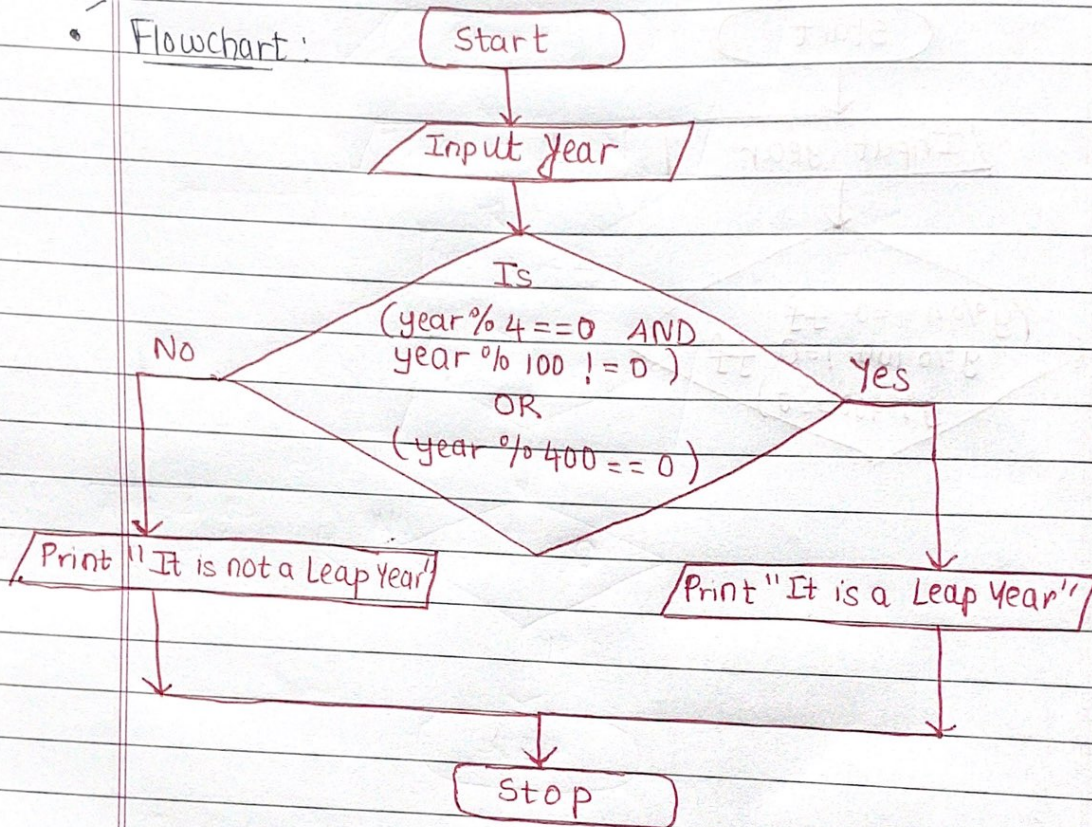 • Flowchart:
Start
Input Year
Is
(year % 4 == 0 AND
year % 100 != 0)
OR
(year % 400 == 0)
No
Yes
Print "It is not a Leap Year"
Print "It is a Leap Year"
Stop